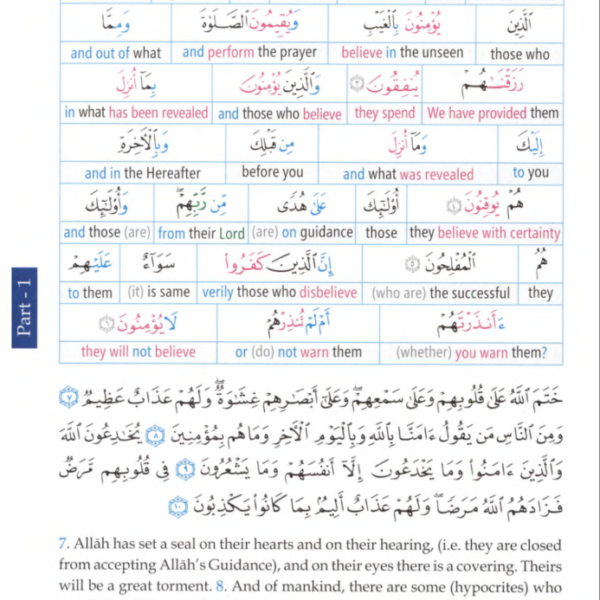 الَّذِينَ يُؤْمِنُونَ بِالْغَيْبِ وَيُقِيمُونَ الصَّلَوٰةَ وَمِمَّا
those who believe in the unseen and perform the prayer and out of what
رَزَقْنَـٰهُمْ يُنفِقُونَ ٣ وَالَّذِينَ يُؤْمِنُونَ بِمَآ أُنزِلَ
We have provided them they spend and those who believe in what has been revealed
إِلَيْكَ وَمَآ أُنزِلَ مِن قَبْلِكَ وَبِالْأَخِرَةِ
to you and what was revealed before you and in the Hereafter
هُمْ يُوقِنُونَ ٤ أُوْلَـٰٓئِكَ عَلَىٰ هُدًى مِّن رَّبِّهِمْ ۖ وَأُوْلَـٰٓئِكَ
they believe with certainty those (are) on guidance from their Lord and those (are)
هُمُ الْمُفْلِحُونَ ٥ إِنَّ الَّذِينَ كَفَرُوا۟ سَوَآءٌ عَلَيْهِمْ
they (who are) the successful verily those who disbelieve (it) is same to them
ءَأَنذَرْتَهُمْ أَمْ لَمْ تُنذِرْهُمْ لَا يُؤْمِنُونَ ٦
(whether) you warn them? or (do) not warn them they will not believe
Part - 1
خَتَمَ اللَّهُ عَلَىٰ قُلُوبِهِمْ وَعَلَىٰ سَمْعِهِمْ ۖ وَعَلَىٰٓ أَبْصَـٰرِهِمْ غِشَـٰوَةٌ ۖ وَلَهُمْ عَذَابٌ عَظِيمٌ ٧
وَمِنَ النَّاسِ مَن يَقُولُ ءَامَنَّا بِاللَّهِ وَبِالْيَوْمِ الْأَخِرِ وَمَا هُم بِمُؤْمِنِينَ ٨ يُخَـٰدِعُونَ اللَّهَ
وَالَّذِينَ ءَامَنُوا۟ وَمَا يَخْدَعُونَ إِلَّآ أَنفُسَهُمْ وَمَا يَشْعُرُونَ ٩ فِى قُلُوبِهِم مَّرَضٌ
فَزَادَهُمُ اللَّهُ مَرَضًا ۖ وَلَهُمْ عَذَابٌ أَلِيمٌۢ بِمَا كَانُوا۟ يَكْذِبُونَ ١٠
7. Allāh has set a seal on their hearts and on their hearing, (i.e. they are closed
from accepting Allāh's Guidance), and on their eyes there is a covering. Theirs
will be a great torment. 8. And of mankind, there are some (hypocrites) who